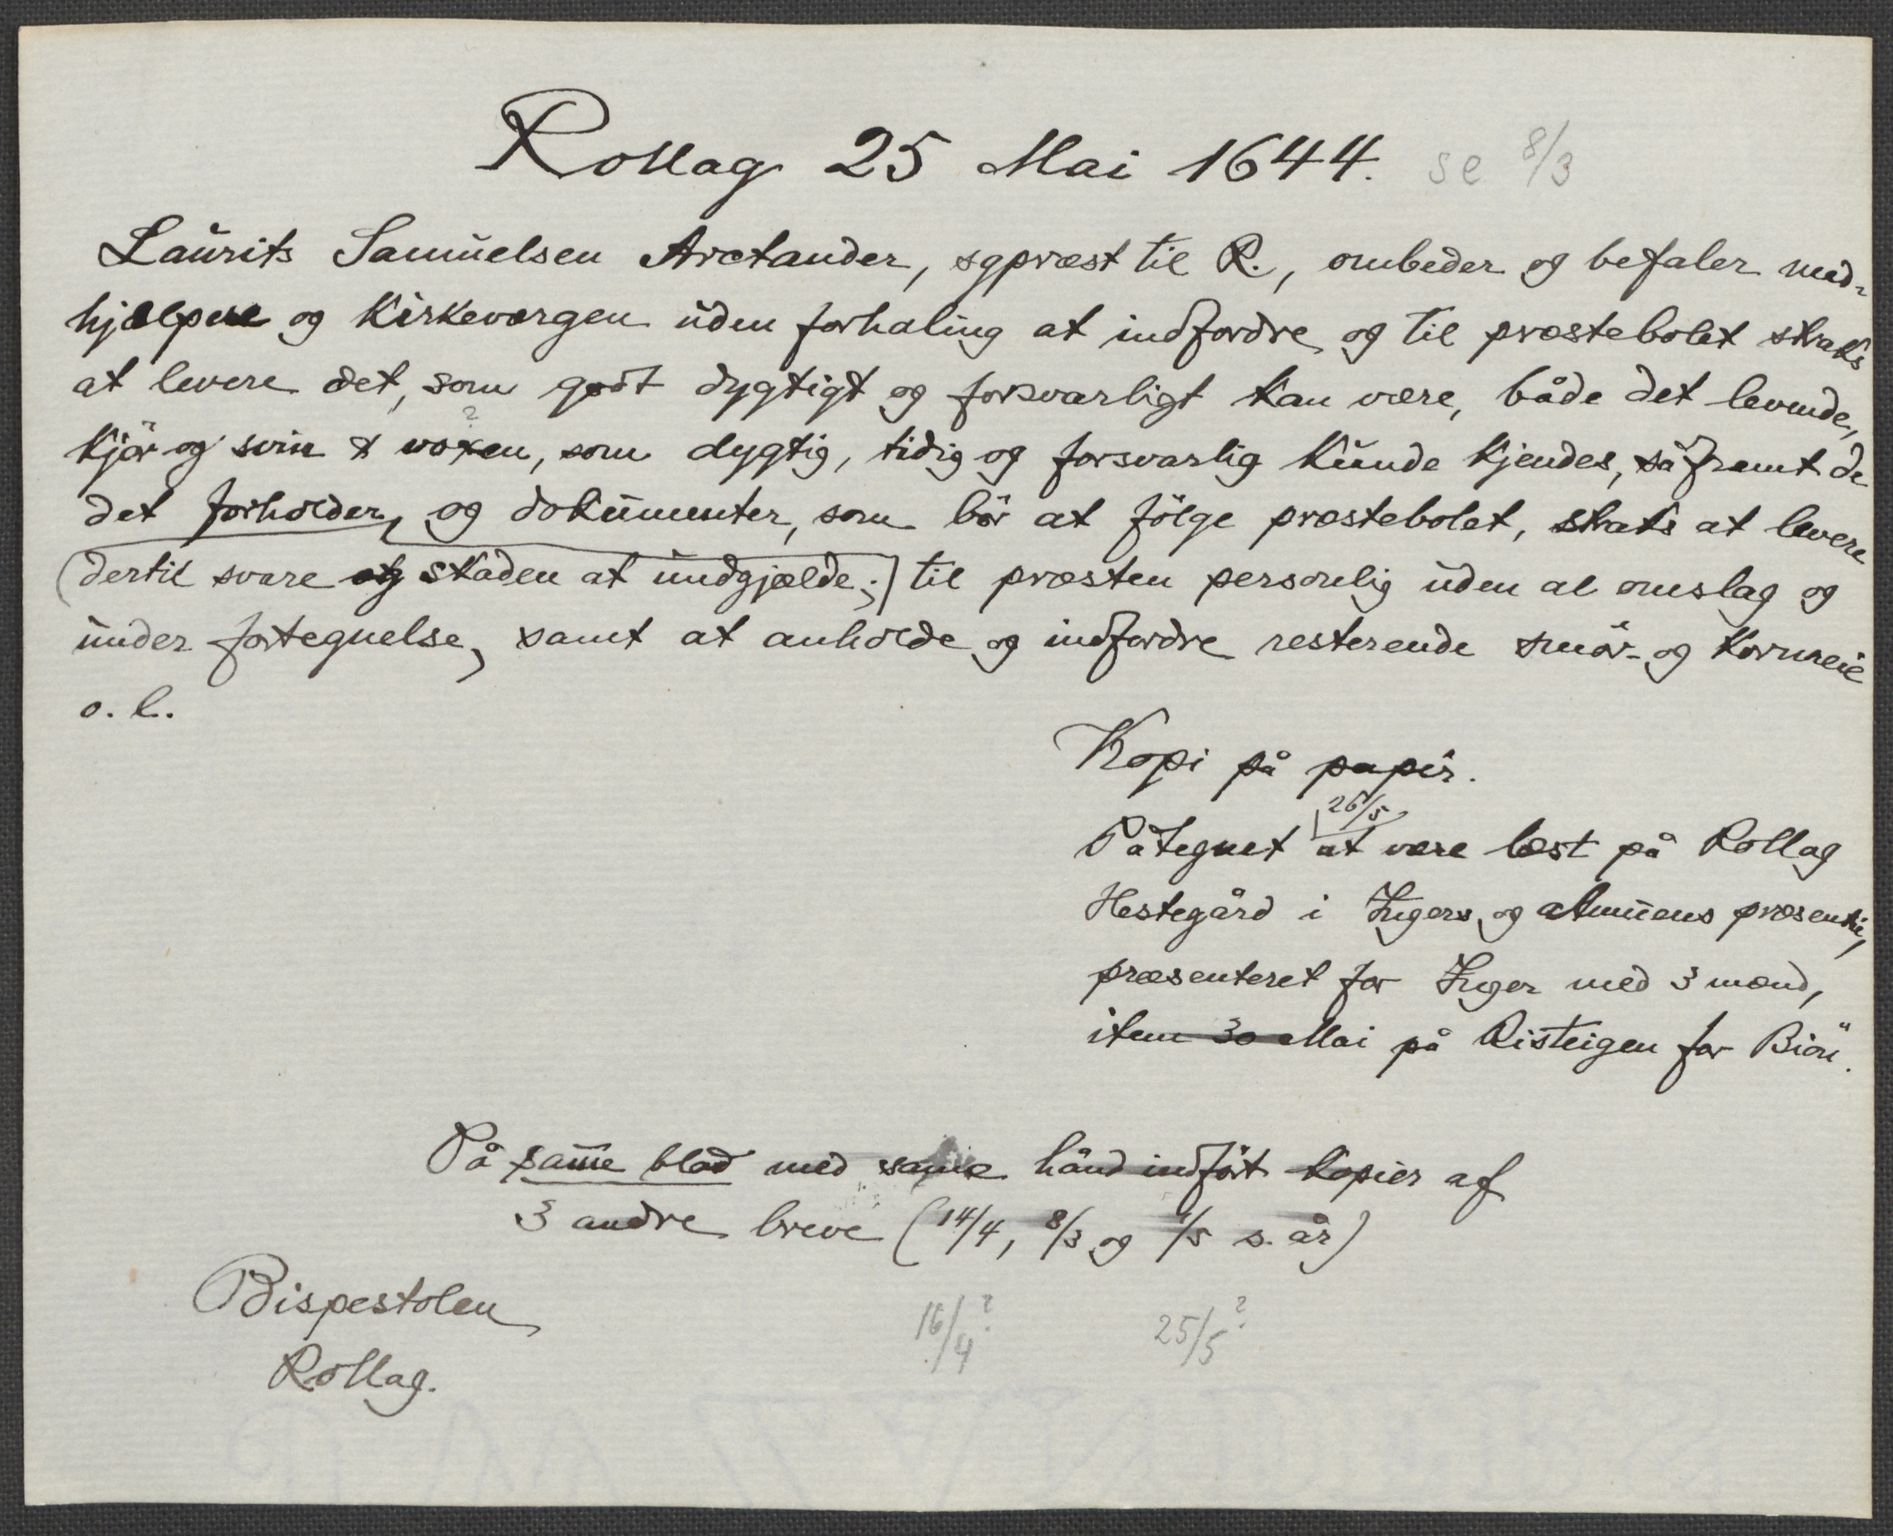 Rollag 25 Mai 1644. se 8/3
Laurits Samuelsen Arctander, sgpræst til R., ombeder og befaler med-
hjælpere og kirkeværgen uden forhaling at indfordre og til præstebolet straks
at levere det, som godt dygtigt og forsvarligt kan være, både det levende,
kjör og svin & voxen, som dygtig, tidig og forsvarlig kunde kjendes, såfremt de
?
det forholder, og dokumenter, som bör at fölge præstebolet, straks at levere
(dertil svare og skaden at undgjælde;) til præsten personlig uden al omslag og
under fortegnelse, samt at anholde og indfordre resterende smör- og korn
o. l.
Kopi på papir.
26/5
Påtegnet at være læst på Rollag
Hestegård i Ingers og almuens præsentie,
præsenteret for Inger med 3 mænd,
item 30 Mai på Risteigen for Biön.
På samme blad med samme hånd indfört kopier af
3 andre breve (14/4, 8/3 og 1/5 s. år)
16/4? 25/5?
Bispestolen
Rollag.